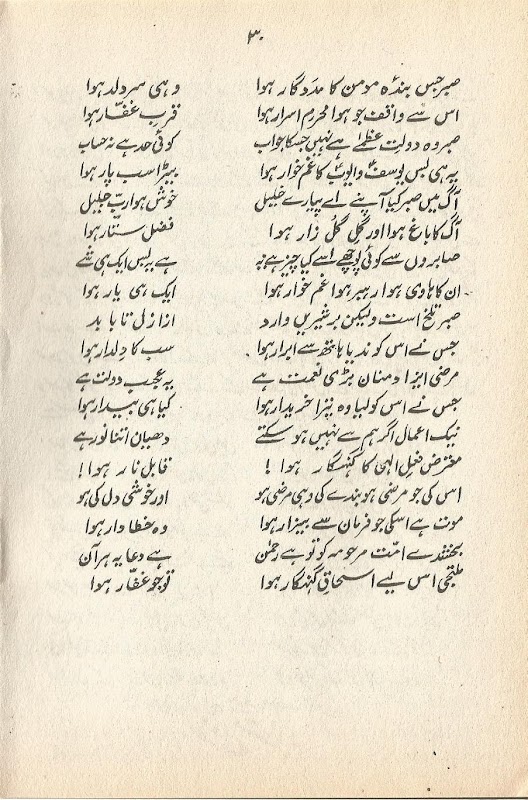 ۳۰
صبر جس بندۂ مومن کا مددگار ہوا وہی سردلد ہوا
اس سے واقف جو ہوا محرم اسرار ہوا قرب غفّار ہوا
صبر وہ دولت عظمٰے ہے نہیں جسکا جواب کوئی حد ہے نہ حساب
یہ ہی بس یوسفؑ و ایوبؑ کا غم خوار ہوا بیڑا سب پار ہوا
آگ میں صبر کیا آپنے اے پیارے خلیل خوش ہوا ربّ جلیل
آگ کا باغ ہوا اور گلِ گل زار ہوا فضل ستّار ہوا
صابروں سے کوئی پوچھے اسے کیا چیز ہے یہ ہے یہ بس ایک ہی شے
ان کا ہادی ہوا رہبر ہوا غم خوار ہوا ایک ہی یار ہوا
صبر تلخ است ولیکن بر شیریں وارد از ازل تا بابد
جس نے اس کو ندیا ہاتھ سے ابرار ہوا سب کا دلدار ہوا
مرضی ایزا دمنان بڑی نعمت ہے یہ عجب دولت ہے
جس نے اس کو لیا وہ تیرا خریدار ہوا کیا ہی بیدار ہوا
نیک اعمال اگر ہم سے نہیں ہو سکتے دھیان اتنا تو رہے
معترض فعل الٰہی کا گنہگار ہوا ! قابل نار ہوا !
اس کی جو مرضی ہو بندے کی وہی مرضی ہو اور خوشی دل کی ہو
موت ہے اسکی جو فرمان سے بیزار ہوا وہ خطا دار ہوا
بخشدے امّت مرحومہ کو تو ہے رحمٰن ہے دعا یہ ہر آن
ملتجی اس لیے اسحاق گنہگار ہوا تو جو غفّار ہوا